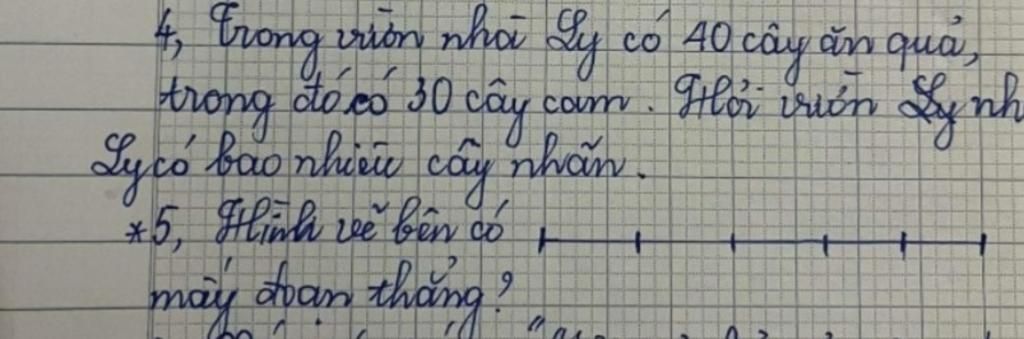 4, Trong vườn nhà Ly có 40 cây ăn quả,
trong đó có 30 cây cam. Hỏi vườn Ly nh
Ly có bao nhiêu cây nhãn.
*5, Hình vẽ bên có
mấy đoạn thẳng?